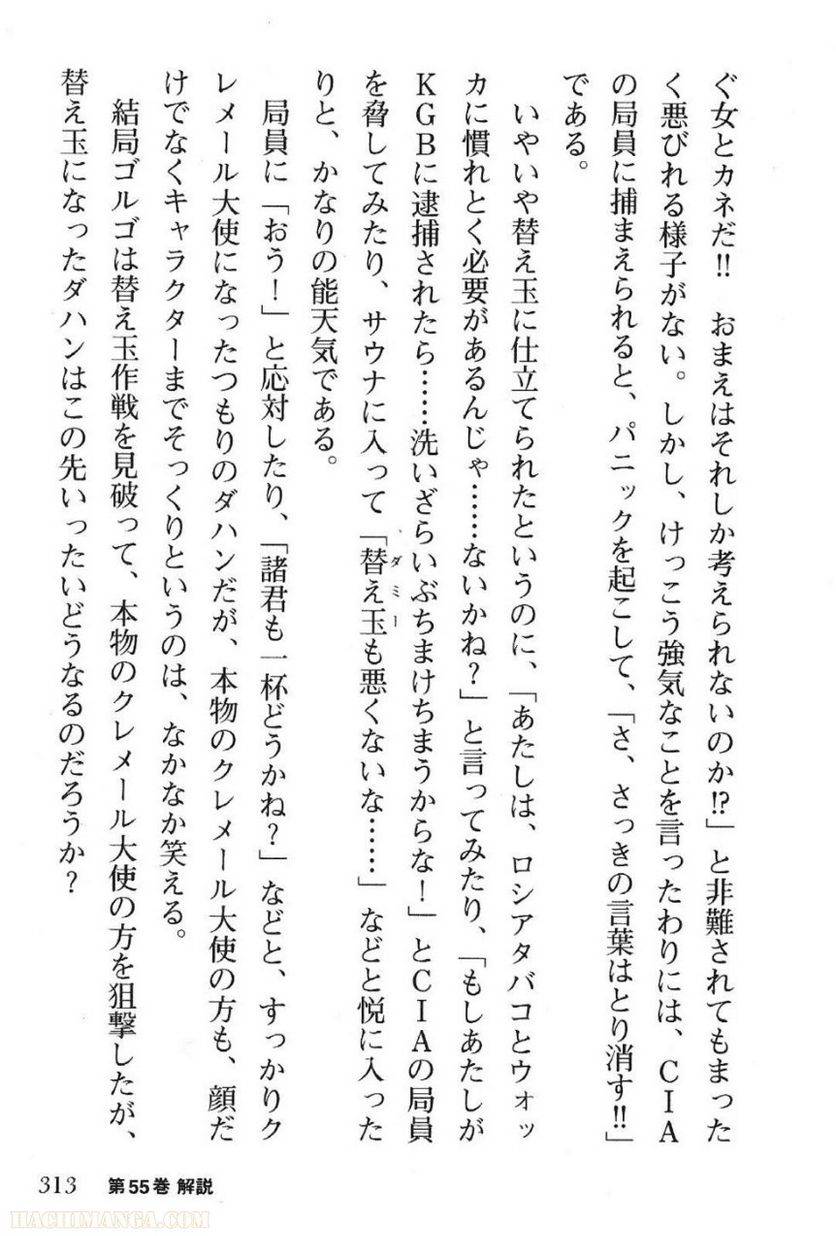 ぐ女とカネだ!!　おまえはそれしか考えられないのか!?」と非難されてもまった
く悪びれる様子がない。しかし、けっこう強気なことを言ったわりには、ＣＩＡ
の局員に捕まえられると、パニックを起こして、「さ、さっきの言葉はとり消す!!」
である。
いやいや替え玉に仕立てられたというのに、「あたしは、ロシアタバコとウォッ
カに慣れとく必要があるんじゃ……ないかね？」と言ってみたり、「もしあたしが
ＫＧＢに逮捕されたら……洗いざらいぶちまけちまうからな！」とＣＩＡの局員
を脅してみたり、サウナに入って「替え玉も悪くないな……」などと悦に入った
ダミー
りと、かなりの能天気である。
局員に「おう！」と応対したり、「諸君も一杯どうかね？」などと、すっかりク
レメール大使になったつもりのダハンだが、本物のクレメール大使の方も、顔だ
けでなくキャラクターまでそっくりというのは、なかなか笑える。
結局ゴルゴは替え玉作戦を見破って、本物のクレメール大使の方を狙撃したが、
替え玉になったダハンはこの先いったいどうなるのだろうか？
313 第55巻 解説
HACHIMANGA.COM